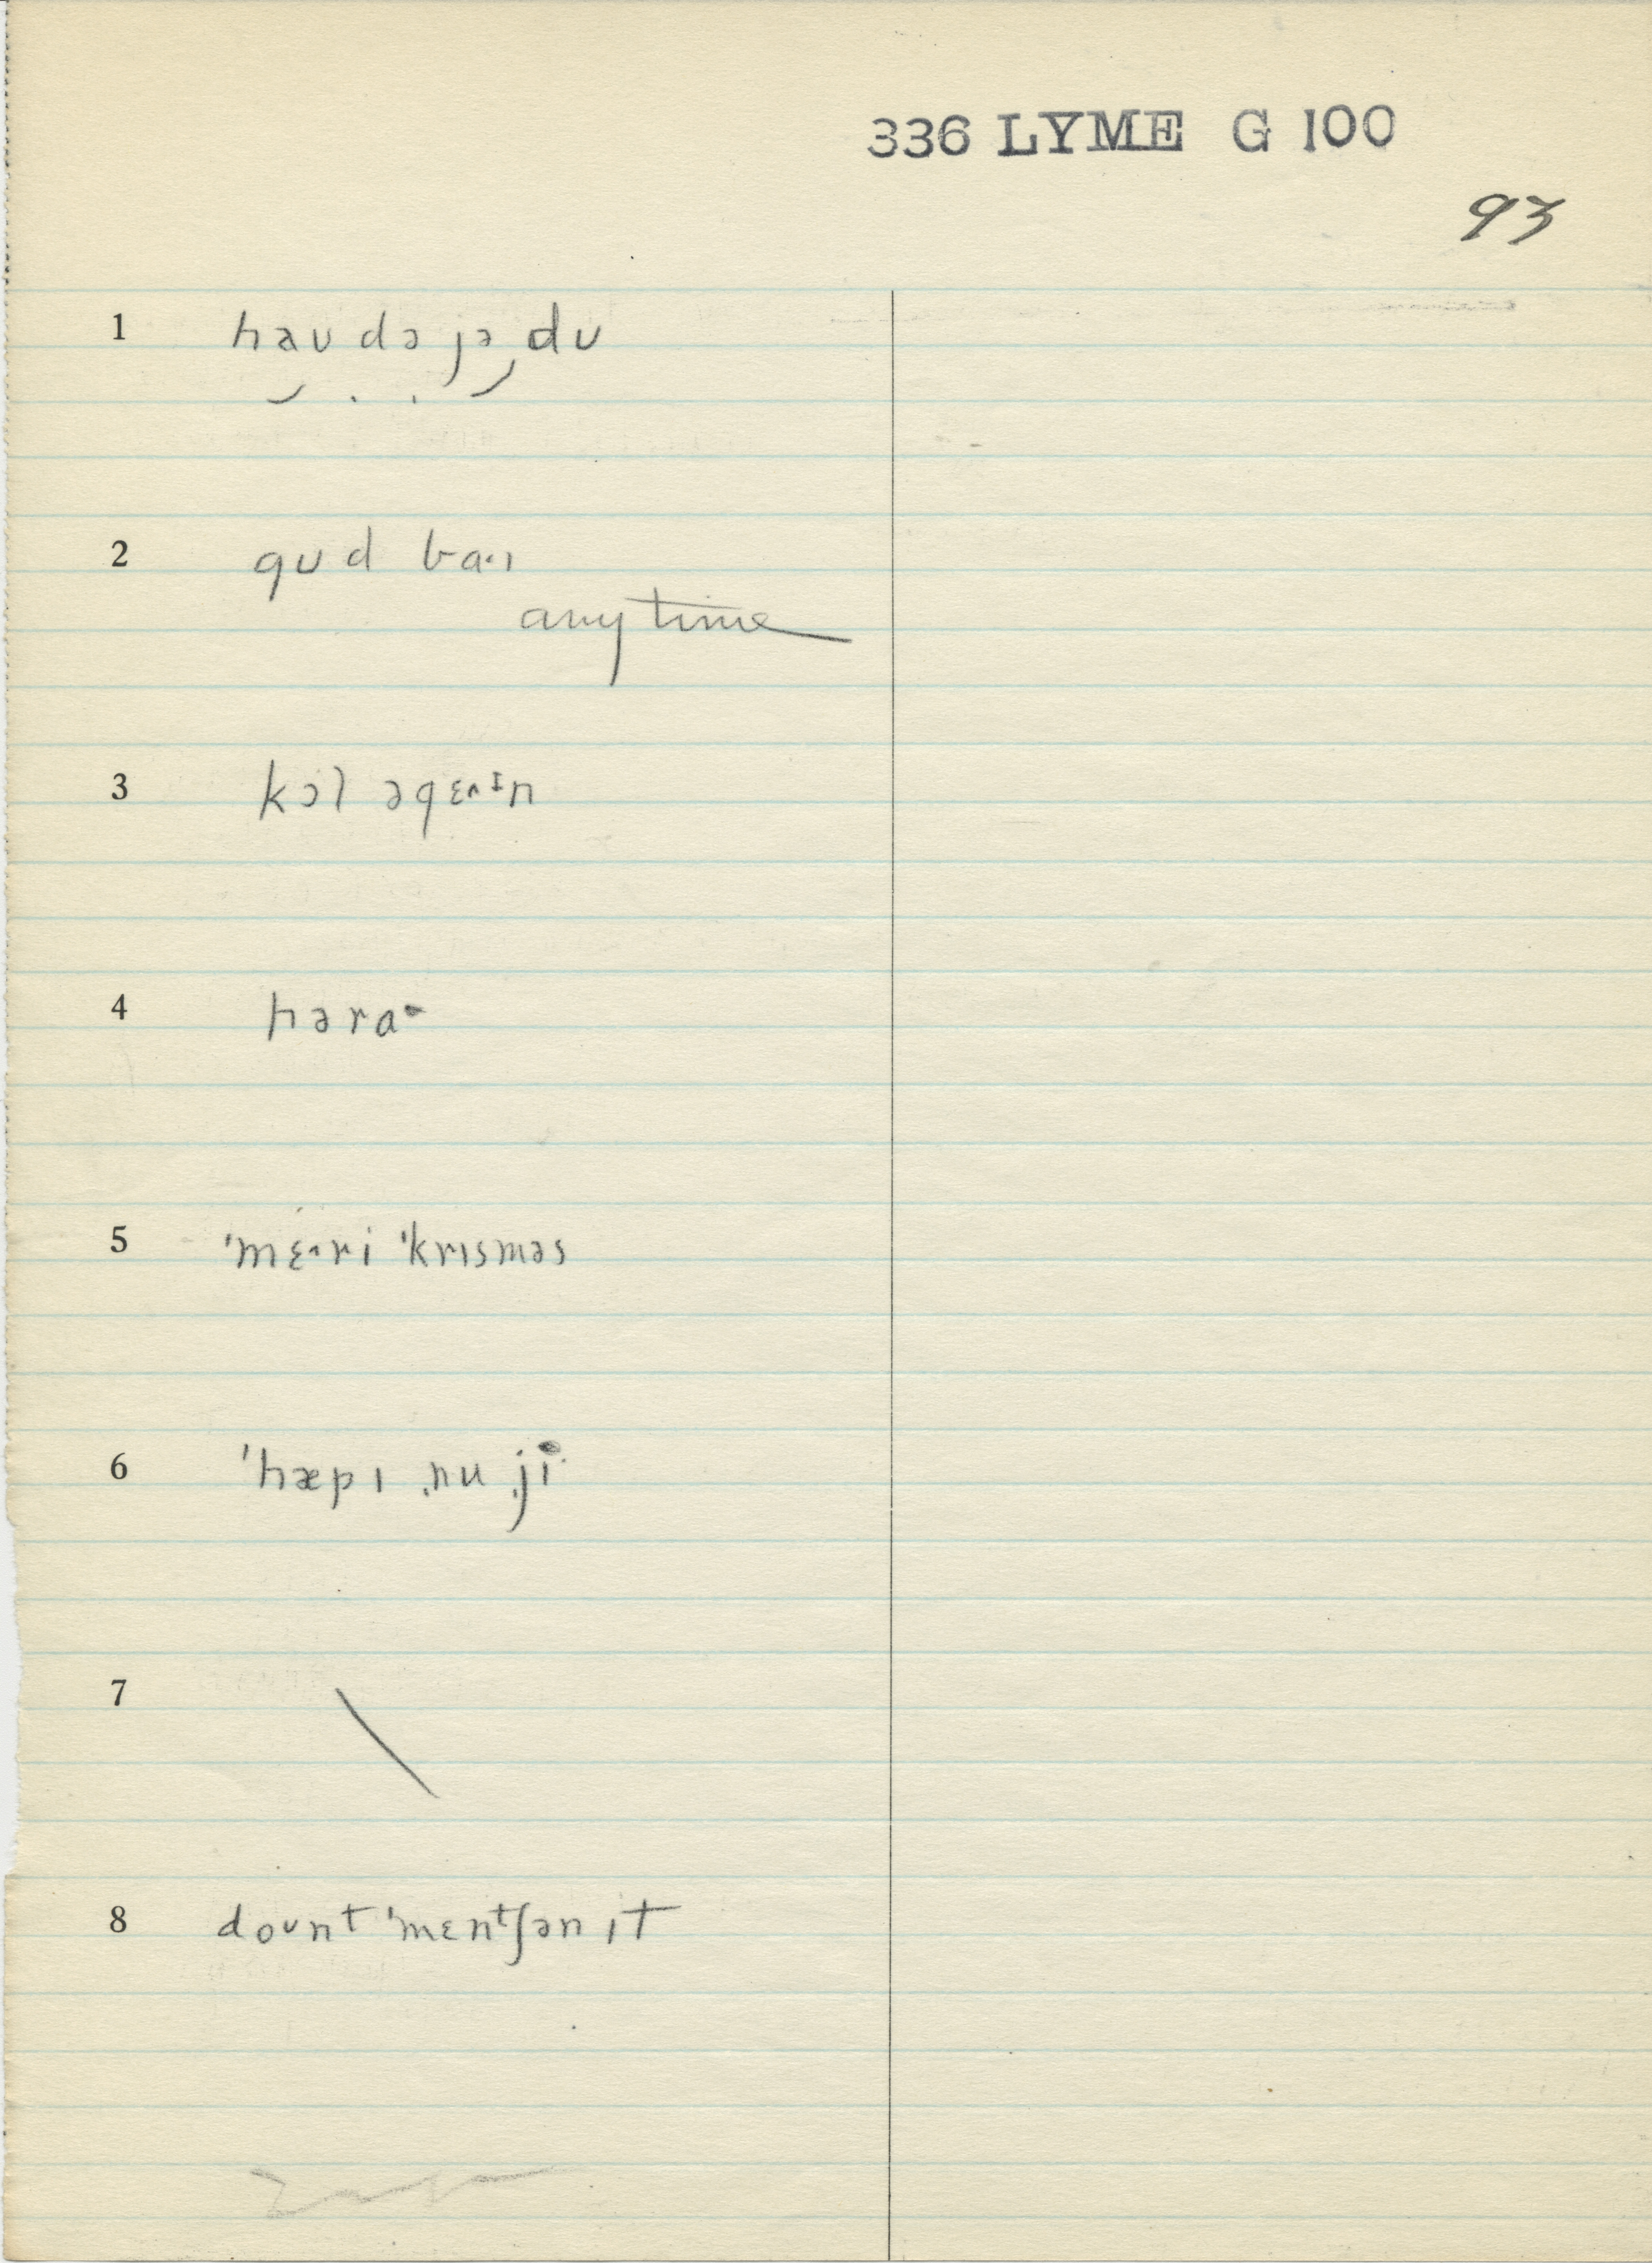 336 LYME G 100
93
1 haʊ də jə ˌdʊ
2 gʊd ba·ɪ
anytime
3 kɔl əgɛ˄ɪn
4 həra·
5 ˈmɛ˄ri ˈkrɪsməs
6 ˈhæpɪ ˌnu ˌji
7
8 doʊnt ˈmɛntʃən ɪt